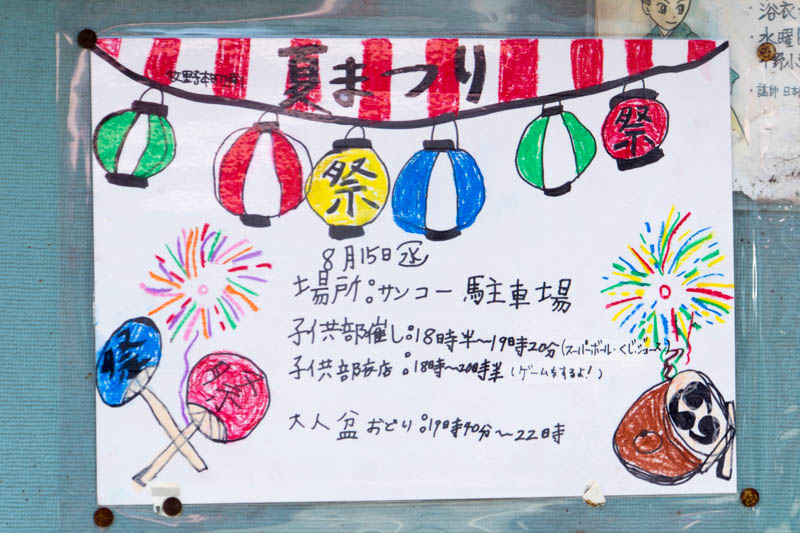 夏まつり
祭
祭
8月15日㊌
場所。サンコー 駐車場
子供部催し:18時半〜19時20分(スーパーボール・くじ・ジュース)
子供部夜店:18時〜20時半(ゲームをするよ!)
大人盆おどり:19時40分〜22時
祭
浴衣
・水曜
野小
・講師 日本